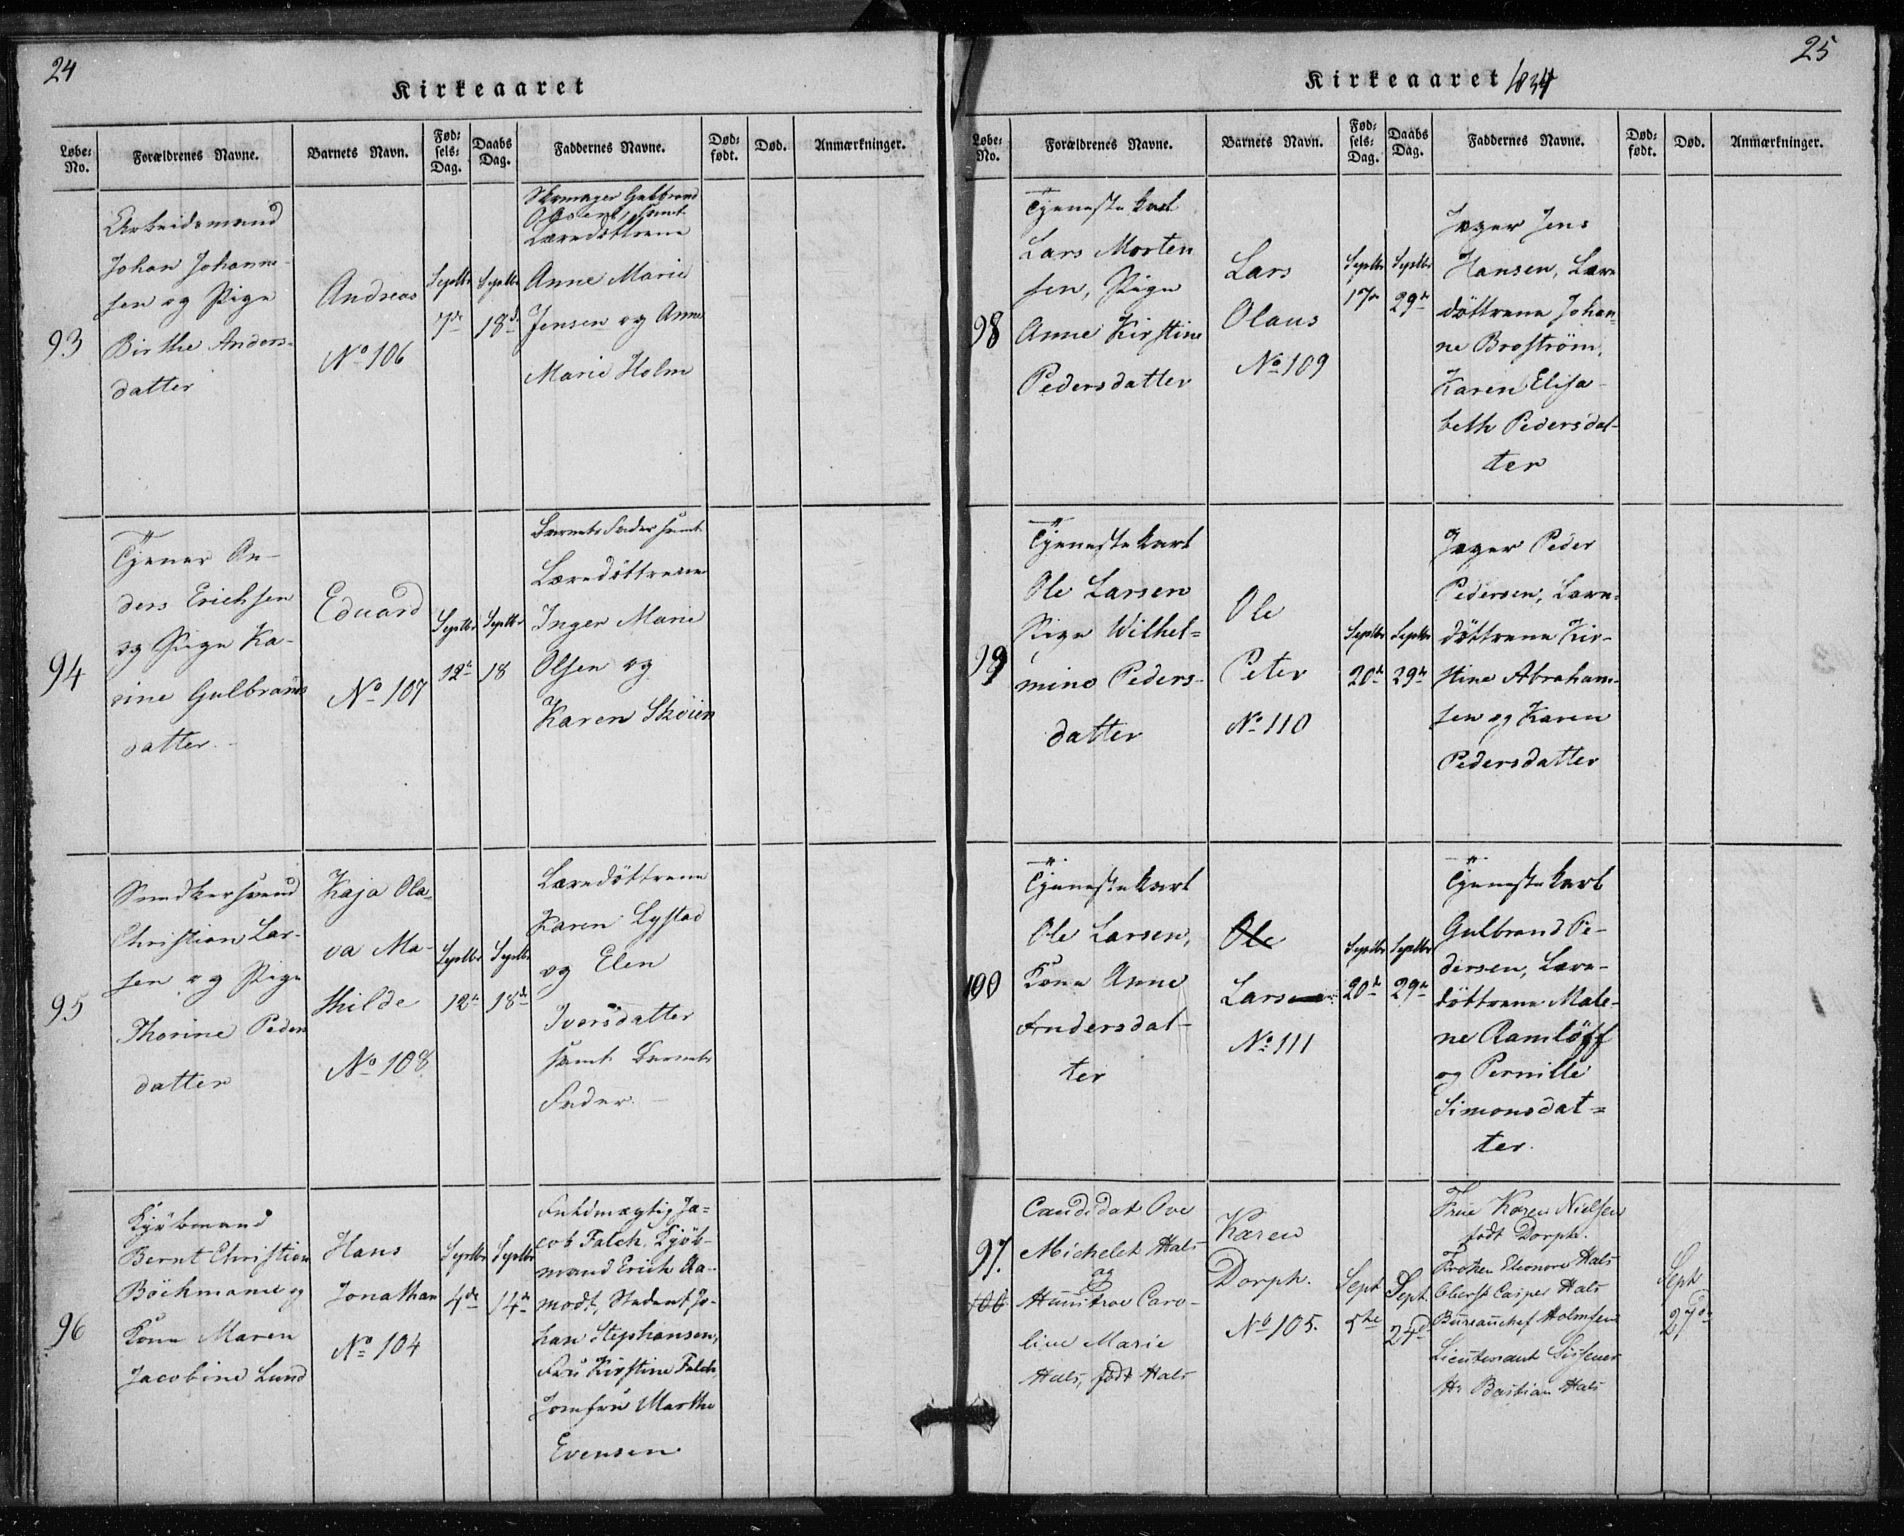 24
Kirkeaaret
Løbe-No.
Forældrenes Navne.
Barnets Navn.
Fødsels-Dag.
Daabs Dag.
Faddernes Navne.
Dødfødt.
Død.
Anmærkninger.
93
Arbeidsmand
Johan Johanne-
sen og Pige
Birthe Anders-
datter
Andreas
No 106
Septbr
7de
Septbr
18d
Skomager Gulbrand
samt
Læredöttrene
Anne Marie
Jensen og Anne
Marie Holm
94
Tjener An-
ders Erichsen
og Pige Ka-
rine Gulbrands
datter.
Eduard
No 107
Septbr
12te
Septbr
18
Barnets Fader samt
Læredöttrene
Inger Marie
Olsen og
Karen Sköien
95
Snedkersvend
Christian Lar-
sen og Pige
Thorine Peders
datter
Kaja Ola-
va Ma-
thilde
No 108
Septbr
12te
Septbr
18de
Læredöttrene
Karen Lystad
og Elen
Iversdatter
samt Barnets
Fader.
96
Kjöbmand
Bernt Christian
Böckmann og
Kone Maren
Jacobine Lund
Hans
Jonathan
No 104
Septbr
4de
Septbr
14de
Fuldmægtig Ja-
cob Falch, Kjöb-
mand Erich Aa-
modt, Student Jo-
han Stephansen,
Fru Kirstine Falch,
Jomfru Marthe
Evensen
25
Kirkeaaret 1834
Løbe-No.
Forældrenes Navne.
Barnets Navn.
Fødsels-Dag.
Daabs Dag.
Faddernes Navne.
Dødfødt.
Død.
Anmærkninger.
98
Tjenestekarl
Lars Morten
sen, Pige
Anne Kirstine
Pedersdatter
Lars
Olaus
No 109
Septbr
17de
Septbr
29de
Jæger Jens
Hansen, Lære
döttrene Johan-
ne Broström,
Karen Elisa-
beth Pedersdat-
ter
99
Tjenestekarl
Ole Larsen
Pige Wilhel-
mine Peders-
datter
Ole
Peter
No 110
Septbr
20de
Septbr
29de
Jæger Peder
Pedersen, Lære-
döttrene Kir-
stine Abraham-
sen og Karen
Pedersdatter
100
Tjenestekarl
Ole Larsen,
Kone Anne
Andersdat-
ter
Ole
Larsen
No 111
Septbr
20de
Septbr
29de
Tjenestekarl
Gulbrand Pe-
dersen, Lære-
döttrene Male-
ne Ramlöff
og Pernille
Simonsdat-
ter.
97.
100
Candidat Ove
Michelet Hals
og
Hustroe Caro-
line Marie
Hals, född Hals
Karen
Dorph.
No 105.
Sept
5te
Sept
24d
Frue Karen Nielsen
född Dorph.
Frøken Eleonore Hals
Oberst Casper Hals
Bureauchef Holmsen
Lieutenant Sissener
Hr Bastian Hals
Sept
27de